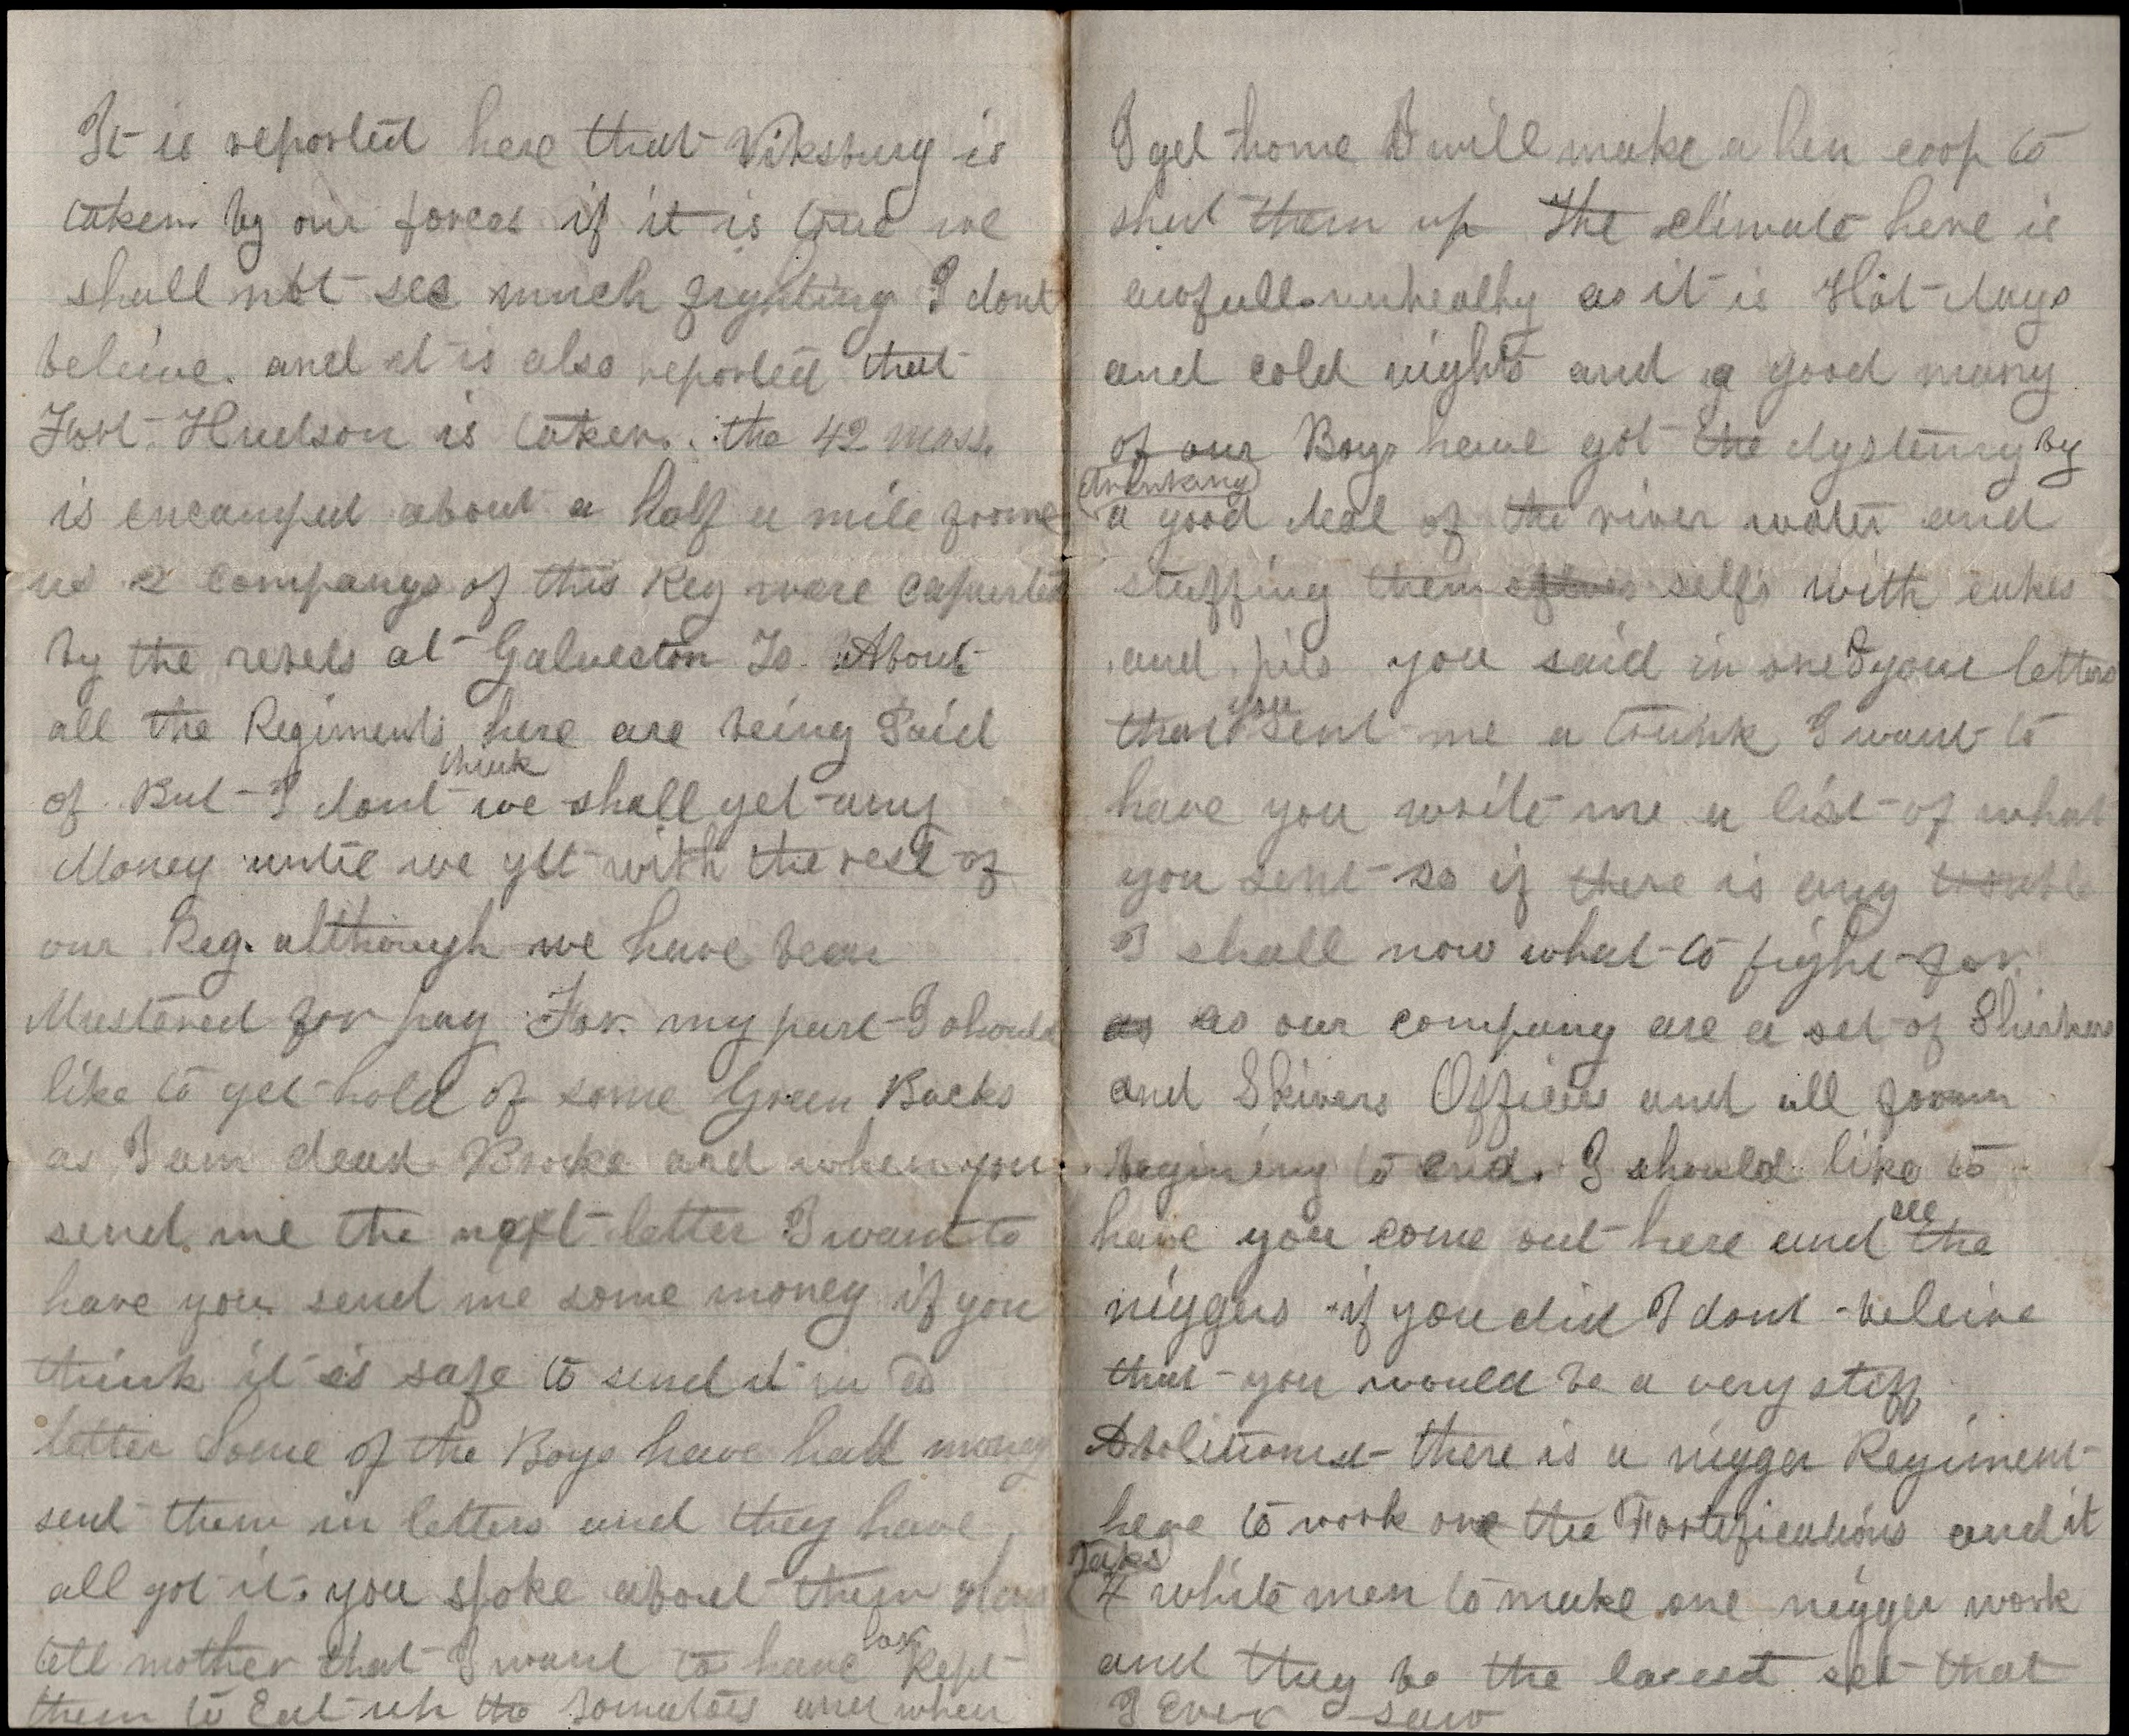 It is reported here that Viksburg is
taken by our forces if it is true we
shall not see much fighting I dont
beleive. and it is also reported that
Fort. Hudson is taken. the 42 Mass.
is encamped about a half a mile frome
us 2 companys of this Reg ware capuerted
by the rebels at Galveston Is. About
all the Regiments here are being Paid
of. But I dont think we shall get any
Money untill we get with the rest of
our Reg. although we have bean
Mustered for pay For my part I should
like to get hold of some Green Backs
as I am dead Broke and when you
send me the next letter I want to
have you send me some money if you
think it is safe to send it in a
letter Some of the Boys have hadd money
sent them in letters and they have
all got it. you spoke about them Hens
tell mother that I want to have her Kept
them to Eat up the tomatoes and when
I get home I will make a hen coop to
shut them up The climate here is
awfull unhealthy as it is Hot days
and cold nights and a good many
of our Boys have got the dystenry by
drinking a good deal of the river water and
stuffing them selfs with cakes
and pies you said in one of your letters
that you sent me a trunk I want to
have you write me a list of what
you sent so if there is any trouble
I shall now what to fight for
as as our company are a set of Shirkers
and Skivers Officers and all from
begining to end. I should like to
have you come out here and see the
niggers if you did I dont beleive
that you would be a very stiff
Abolitionist there is a nigger Regiment
here to work one the Fortifications and it
Takes 4 white men to make one nigger work
and they be the lasest set that
I Ever saw